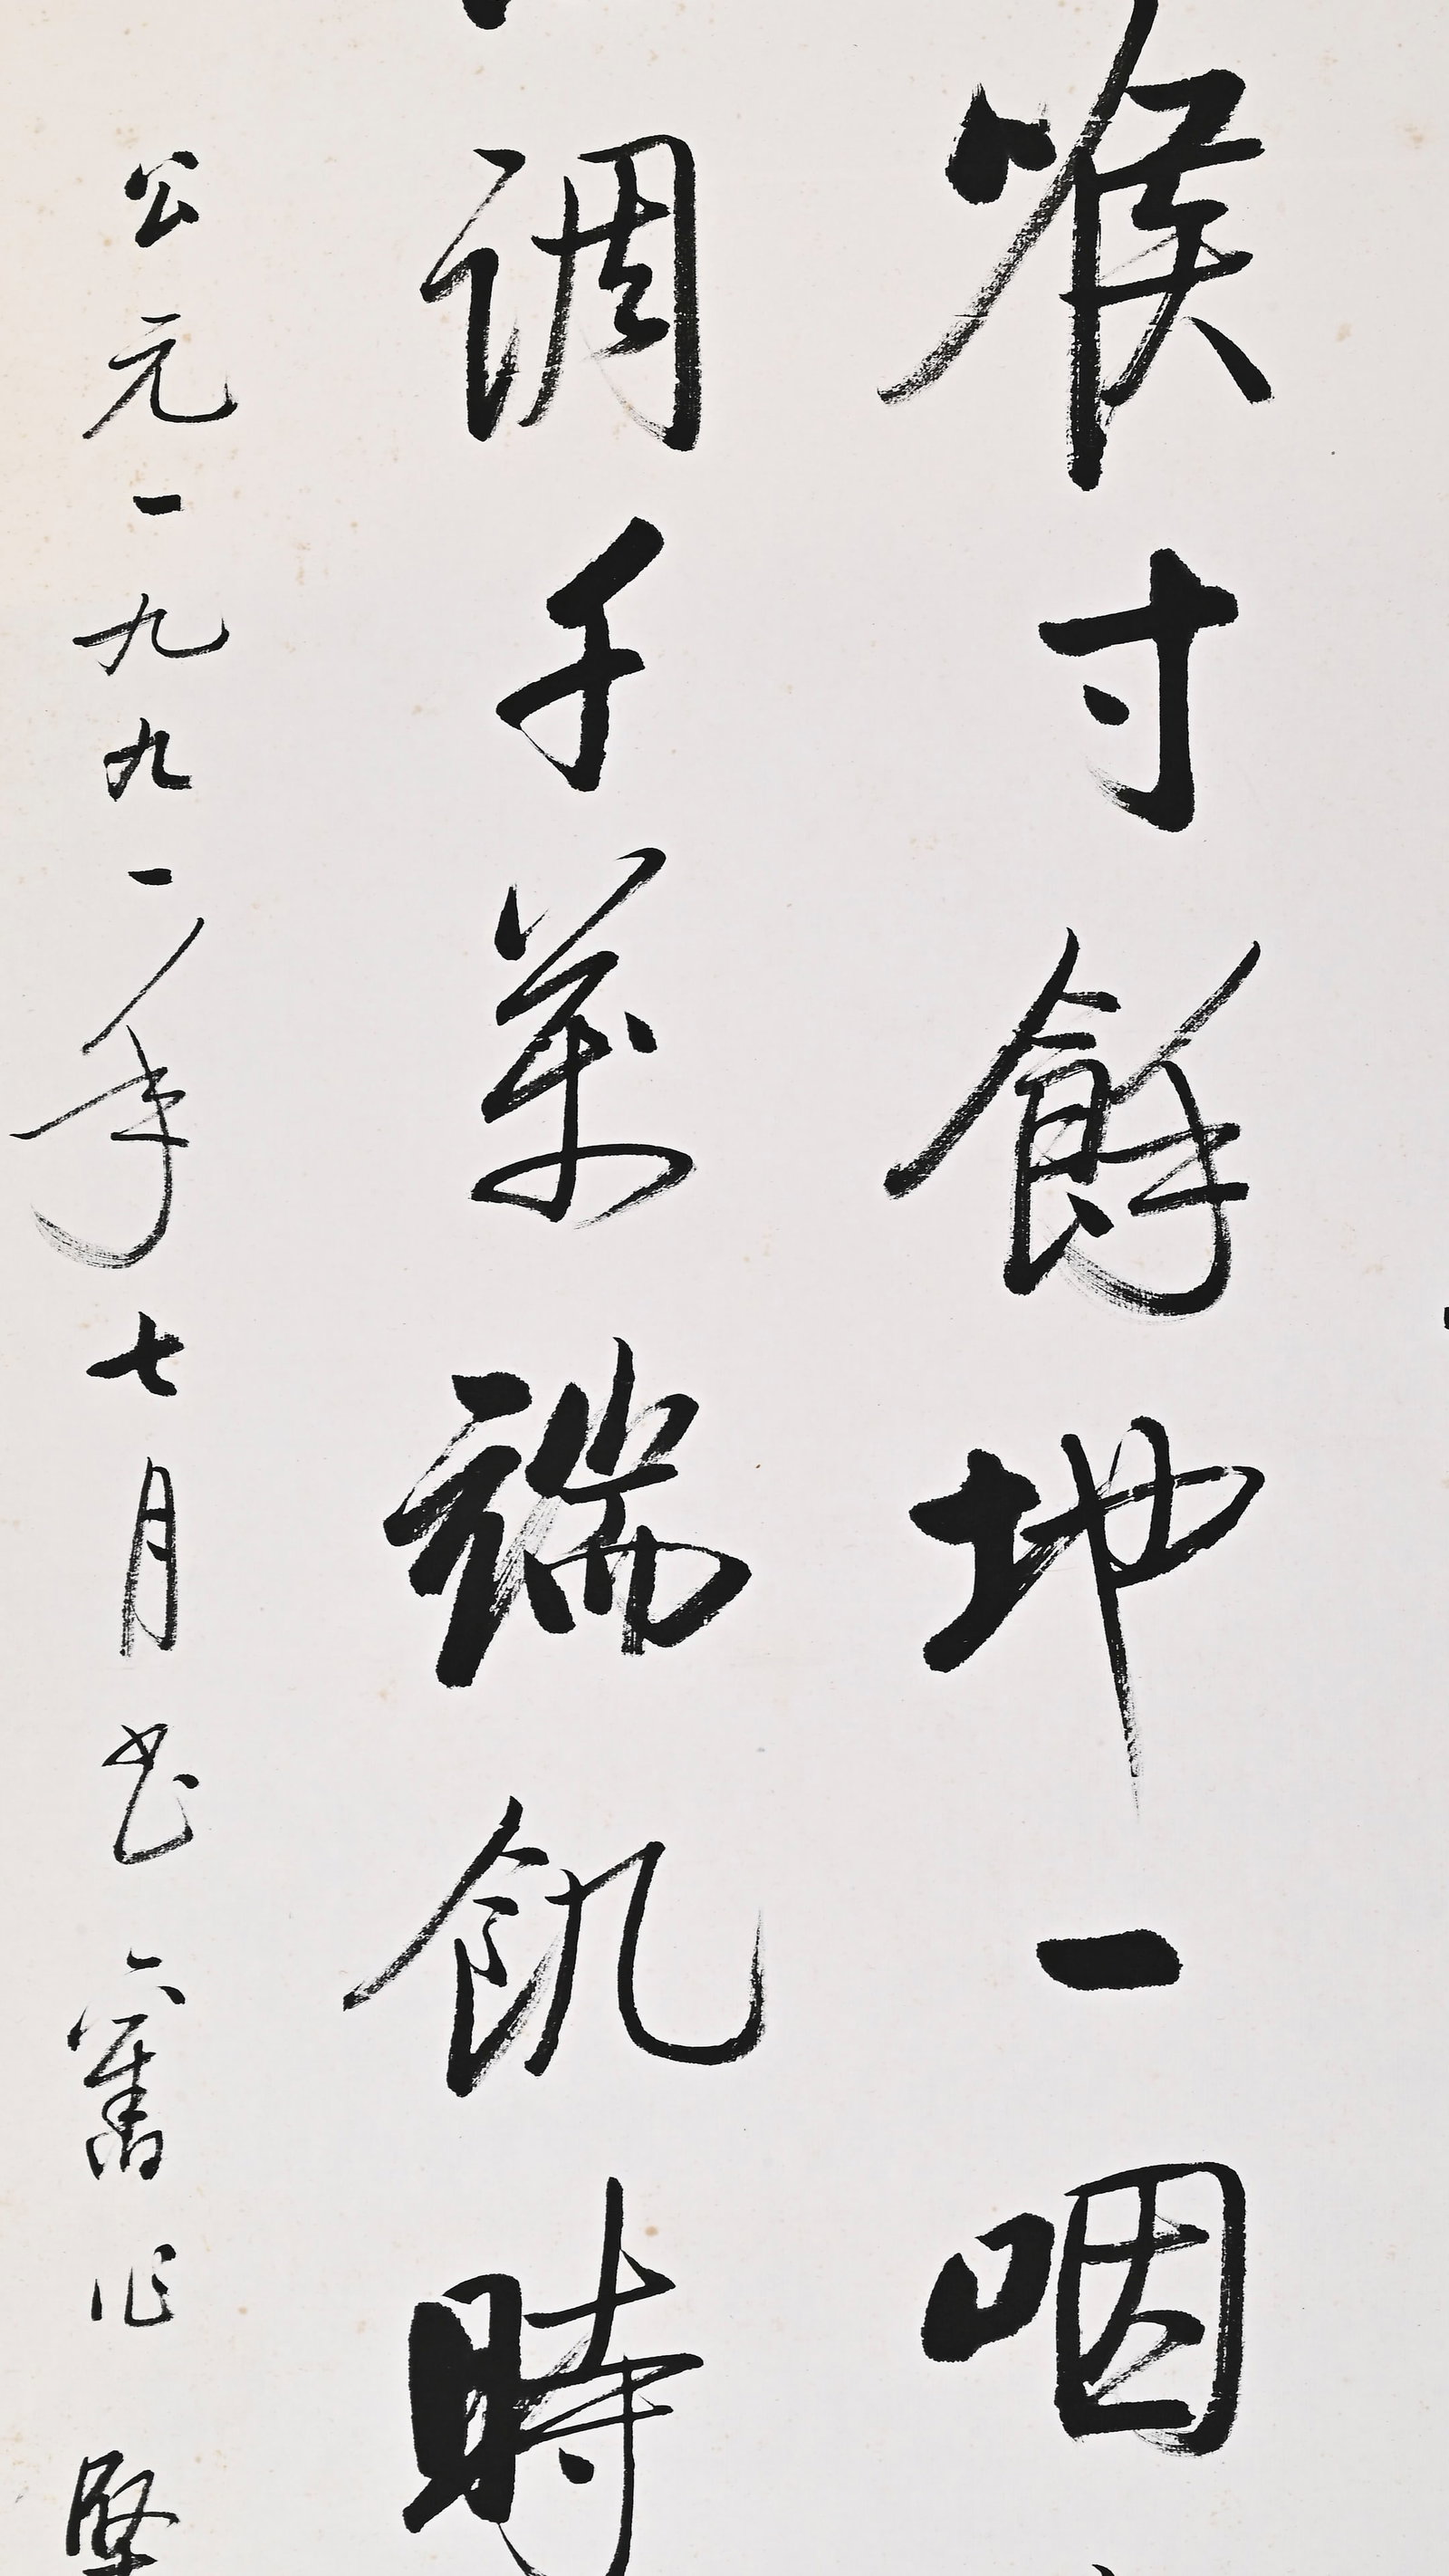 喉寸餘地一咽
調千萬端飢時
公元一九九一年七月書舊作堅